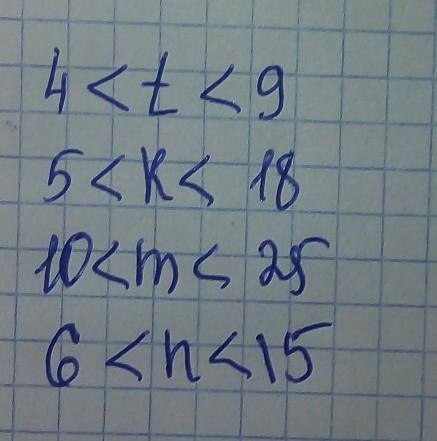 4 < t < 9
5 < k < 18
10 < m < 25
6 < n < 15